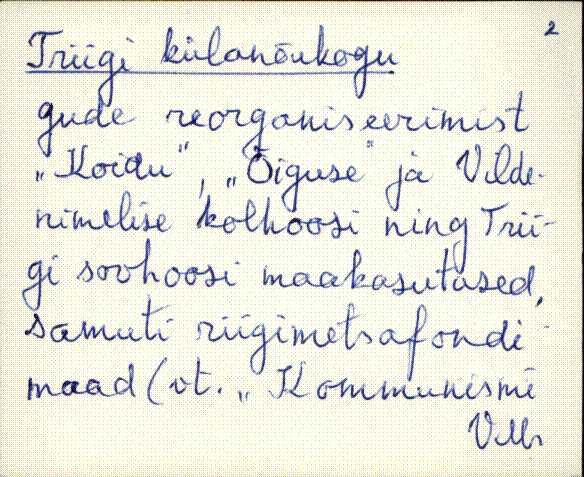 2
Triigi külanõukogu
gude reorganiseerimist
„Koidu", „Õiguse" ja Vilde-
nimelise kolhoosi ning Trii-
gi sovhoosi maakasutused,
samuti riigimetsafondi
maad (vt. „Kommunismi